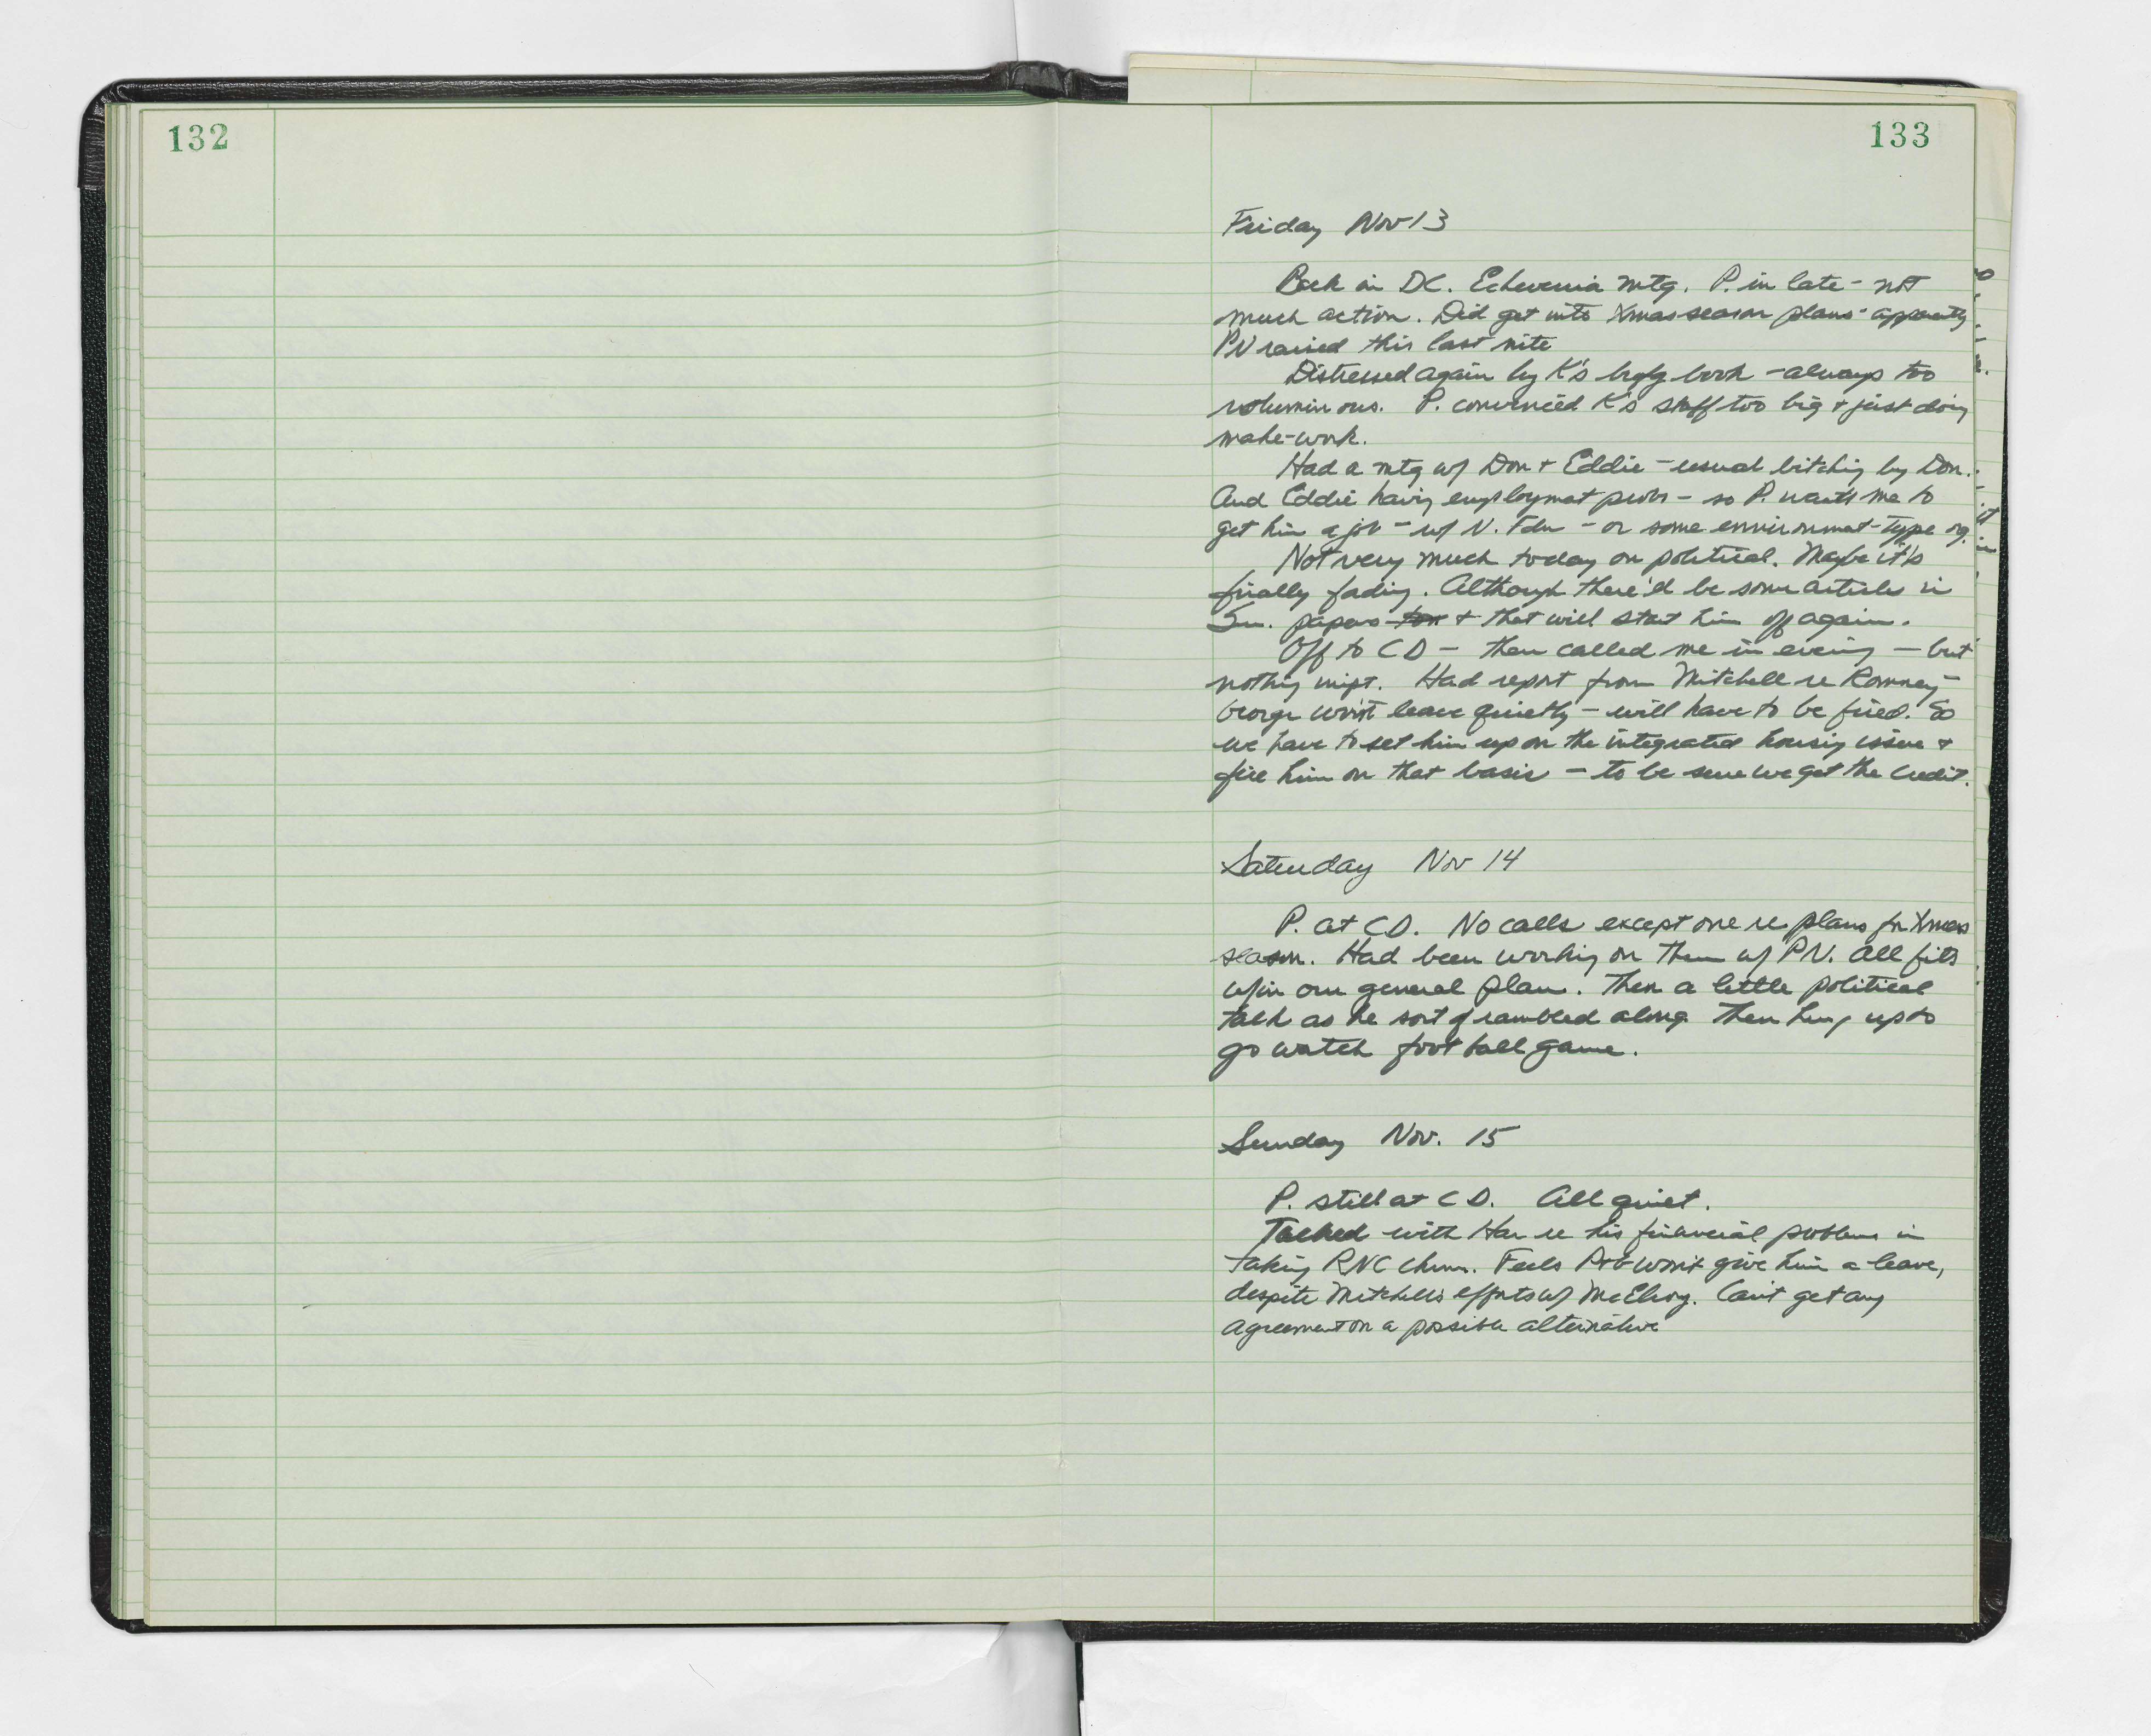 132
133
Friday Nov 13
Back in DC. Echeverria mtg. P. in late - not
much action. Did get into Xmas season plans - apparently
PN raised this last nite
Distressed again by K's brfg book - always too
voluminous. P. convinced K's staff too big & just doing
make-work.
Had a mtg w/ Don & Eddie - usual bitching by Don.
And Eddie having employment probs - so P. wants me to
get him a job - w/ N. Fdn - or some environment-type org.
Not very much today on political. Maybe it's
finally fading. Although there'd be some articles in
Sun. papers & that will start him off again.
Off to CD - then called me in evening - but
nothing impt. Had report from Mitchell re Romney -
George won't leave quietly - will have to be fired. So
we have to set him up on the integrated housing issue &
fire him on that basis - to be sure we get the credit.
Saturday Nov 14
P. at CD. No calls except one re plans for Xmas
season. Had been working on them w/ PN. All fits
w/in our general plan. Then a little political
talk as he sort of rambled along. Then hung up to
go watch football game.
Sunday Nov. 15
P. still at CD. All quiet.
Talked with Har re his financial problems in
taking RNC chmn. Feels P&G won't give him a leave,
despite Mitchell's efforts w/ McElroy. Can't get any
agreement on a possible alternative